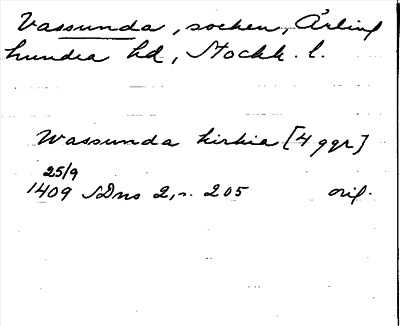 Vassunda, socken, Ärling
hundra hd, Stockh. l.
Wassunda kirkia [4 ggr]
25/9
1409 SDns 2, s. 205 orig.